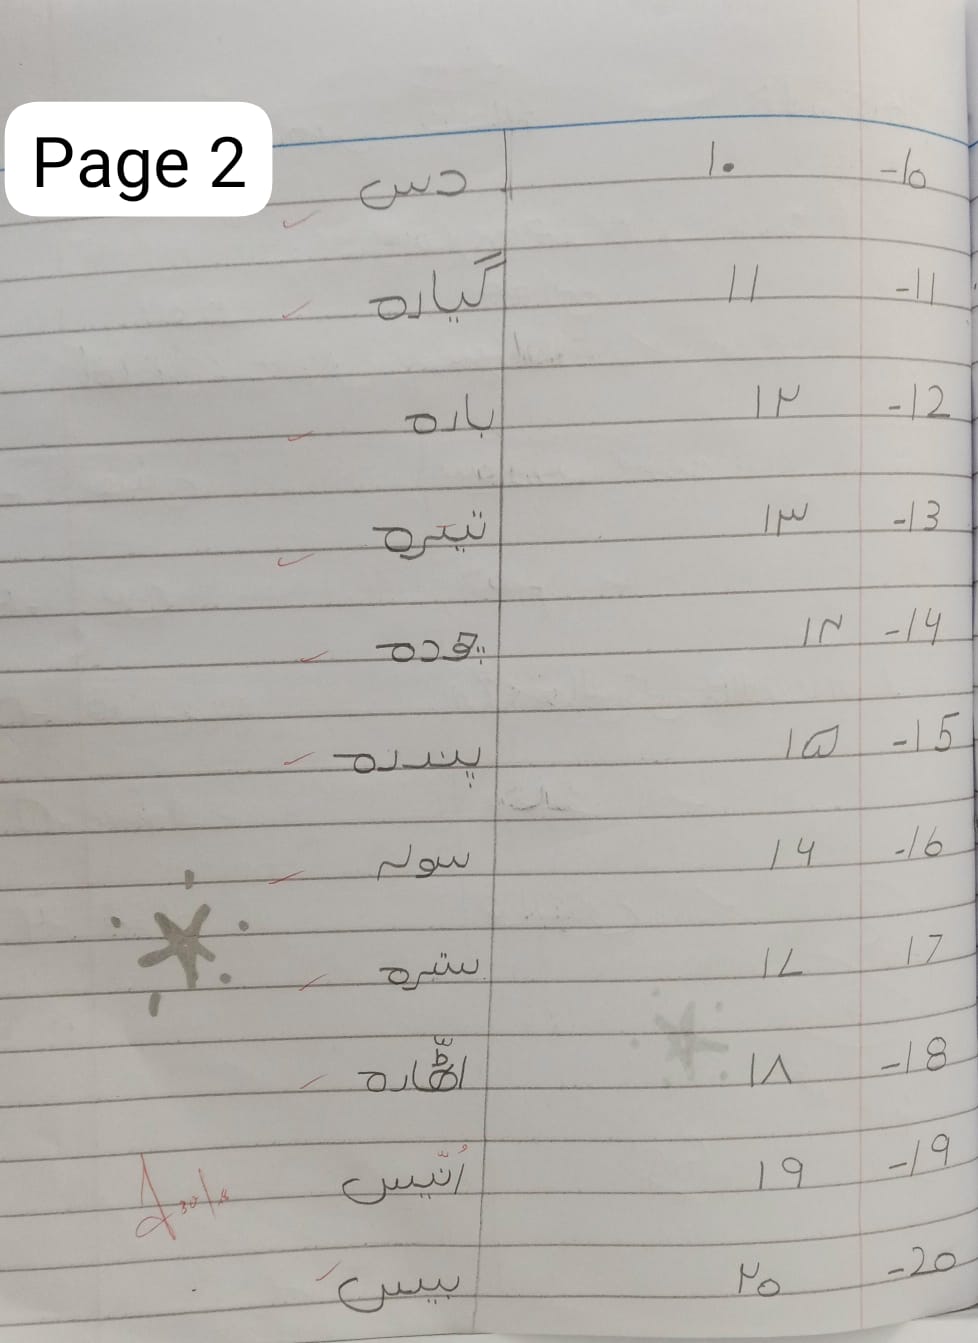 Page 2
10- ۱۰ دس
11- ۱۱ گیارہ
12- ۱۲ بارہ
13- ۱۳ تیرہ
14- ۱۴ چودہ
15- ۱۵ پندرہ
16- ۱۶ سولہ
17 ۱۷ سترہ
18- ۱۸ اٹھّارہ
19- ۱۹ اُنّیس
20- ۲۰ بیس